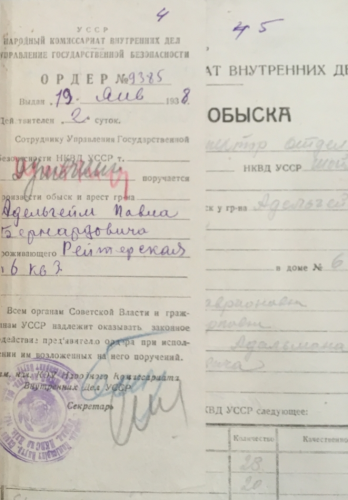 4
УССР
НАРОДНЫЙ КОМИССАРИАТ ВНУТРЕННИХ ДЕЛ
УПРАВЛЕНИЕ ГОСУДАРСТВЕННОЙ БЕЗОПАСНОСТИ
ОРДЕР № 9385
Выдан 19 Янв 1938
Действителен 2 суток.
Сотруднику Управления Государственной
Безопасности НКВД УССР т.
поручается
произвести обыск и арест гр-на
Адельгейм Павла
Бернардовича
проживающего Рейтерская
6 кв 3
Всем органам Советской Власти и граж-
нам УССР надлежит оказывать законное
действие пред'явителю ордера при испол-
ении им возложенных на него поручений.
Комиссариата
Внутренних Дел УССР
Секретарь
45
АТ ВНУТРЕННИХ ДЕ
ОБЫСКА
НКВД УССР
ск у гр-на Адельгей
в доме № 6
КВД УССР следующее:
Количество
Качественно
28
20